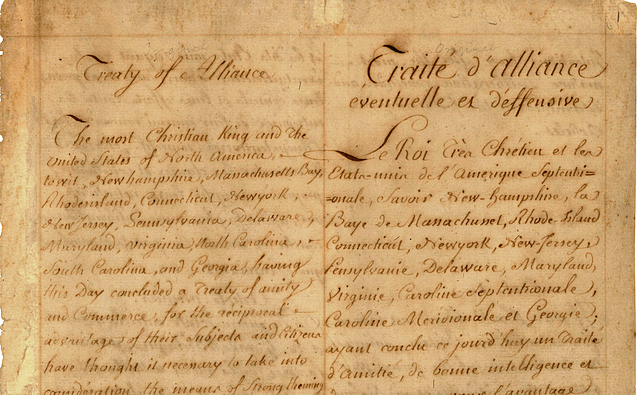 Treaty of Alliance
The most Christian King and the
United States of North America,
to wit, Newhampshire, Massachusetts Bay,
Rhodeisland, Connecticut, Newyork,
New Jersey, Pennsylvania, Delaware,
Maryland, Virginia, North Carolina,
South Carolina, and Georgia, having
this Day concluded a Treaty of amity
and Commerce, for the reciprocal
advantage of their Subjects and Citizens
have thought it necessary to take into
consideration the means of Strengthening
Traité d'alliance
éventuelle et déffensive
Le Roi Très Chrétien et les
Etats-unis de l'Amerique Septentri=
=onale, Savoir New-hampshire, la
Baye de Massachusset, Rhode-Island
Connecticut, Newyork, New-Jersey,
Pensylvanie, Delaware, Maryland,
Virginie, Caroline Septentionale,
Caroline Meridionale et Georgie,
ayant conclu ce jourd'huy un Traité
d'amitié, de bonne intelligence et
l'avantage